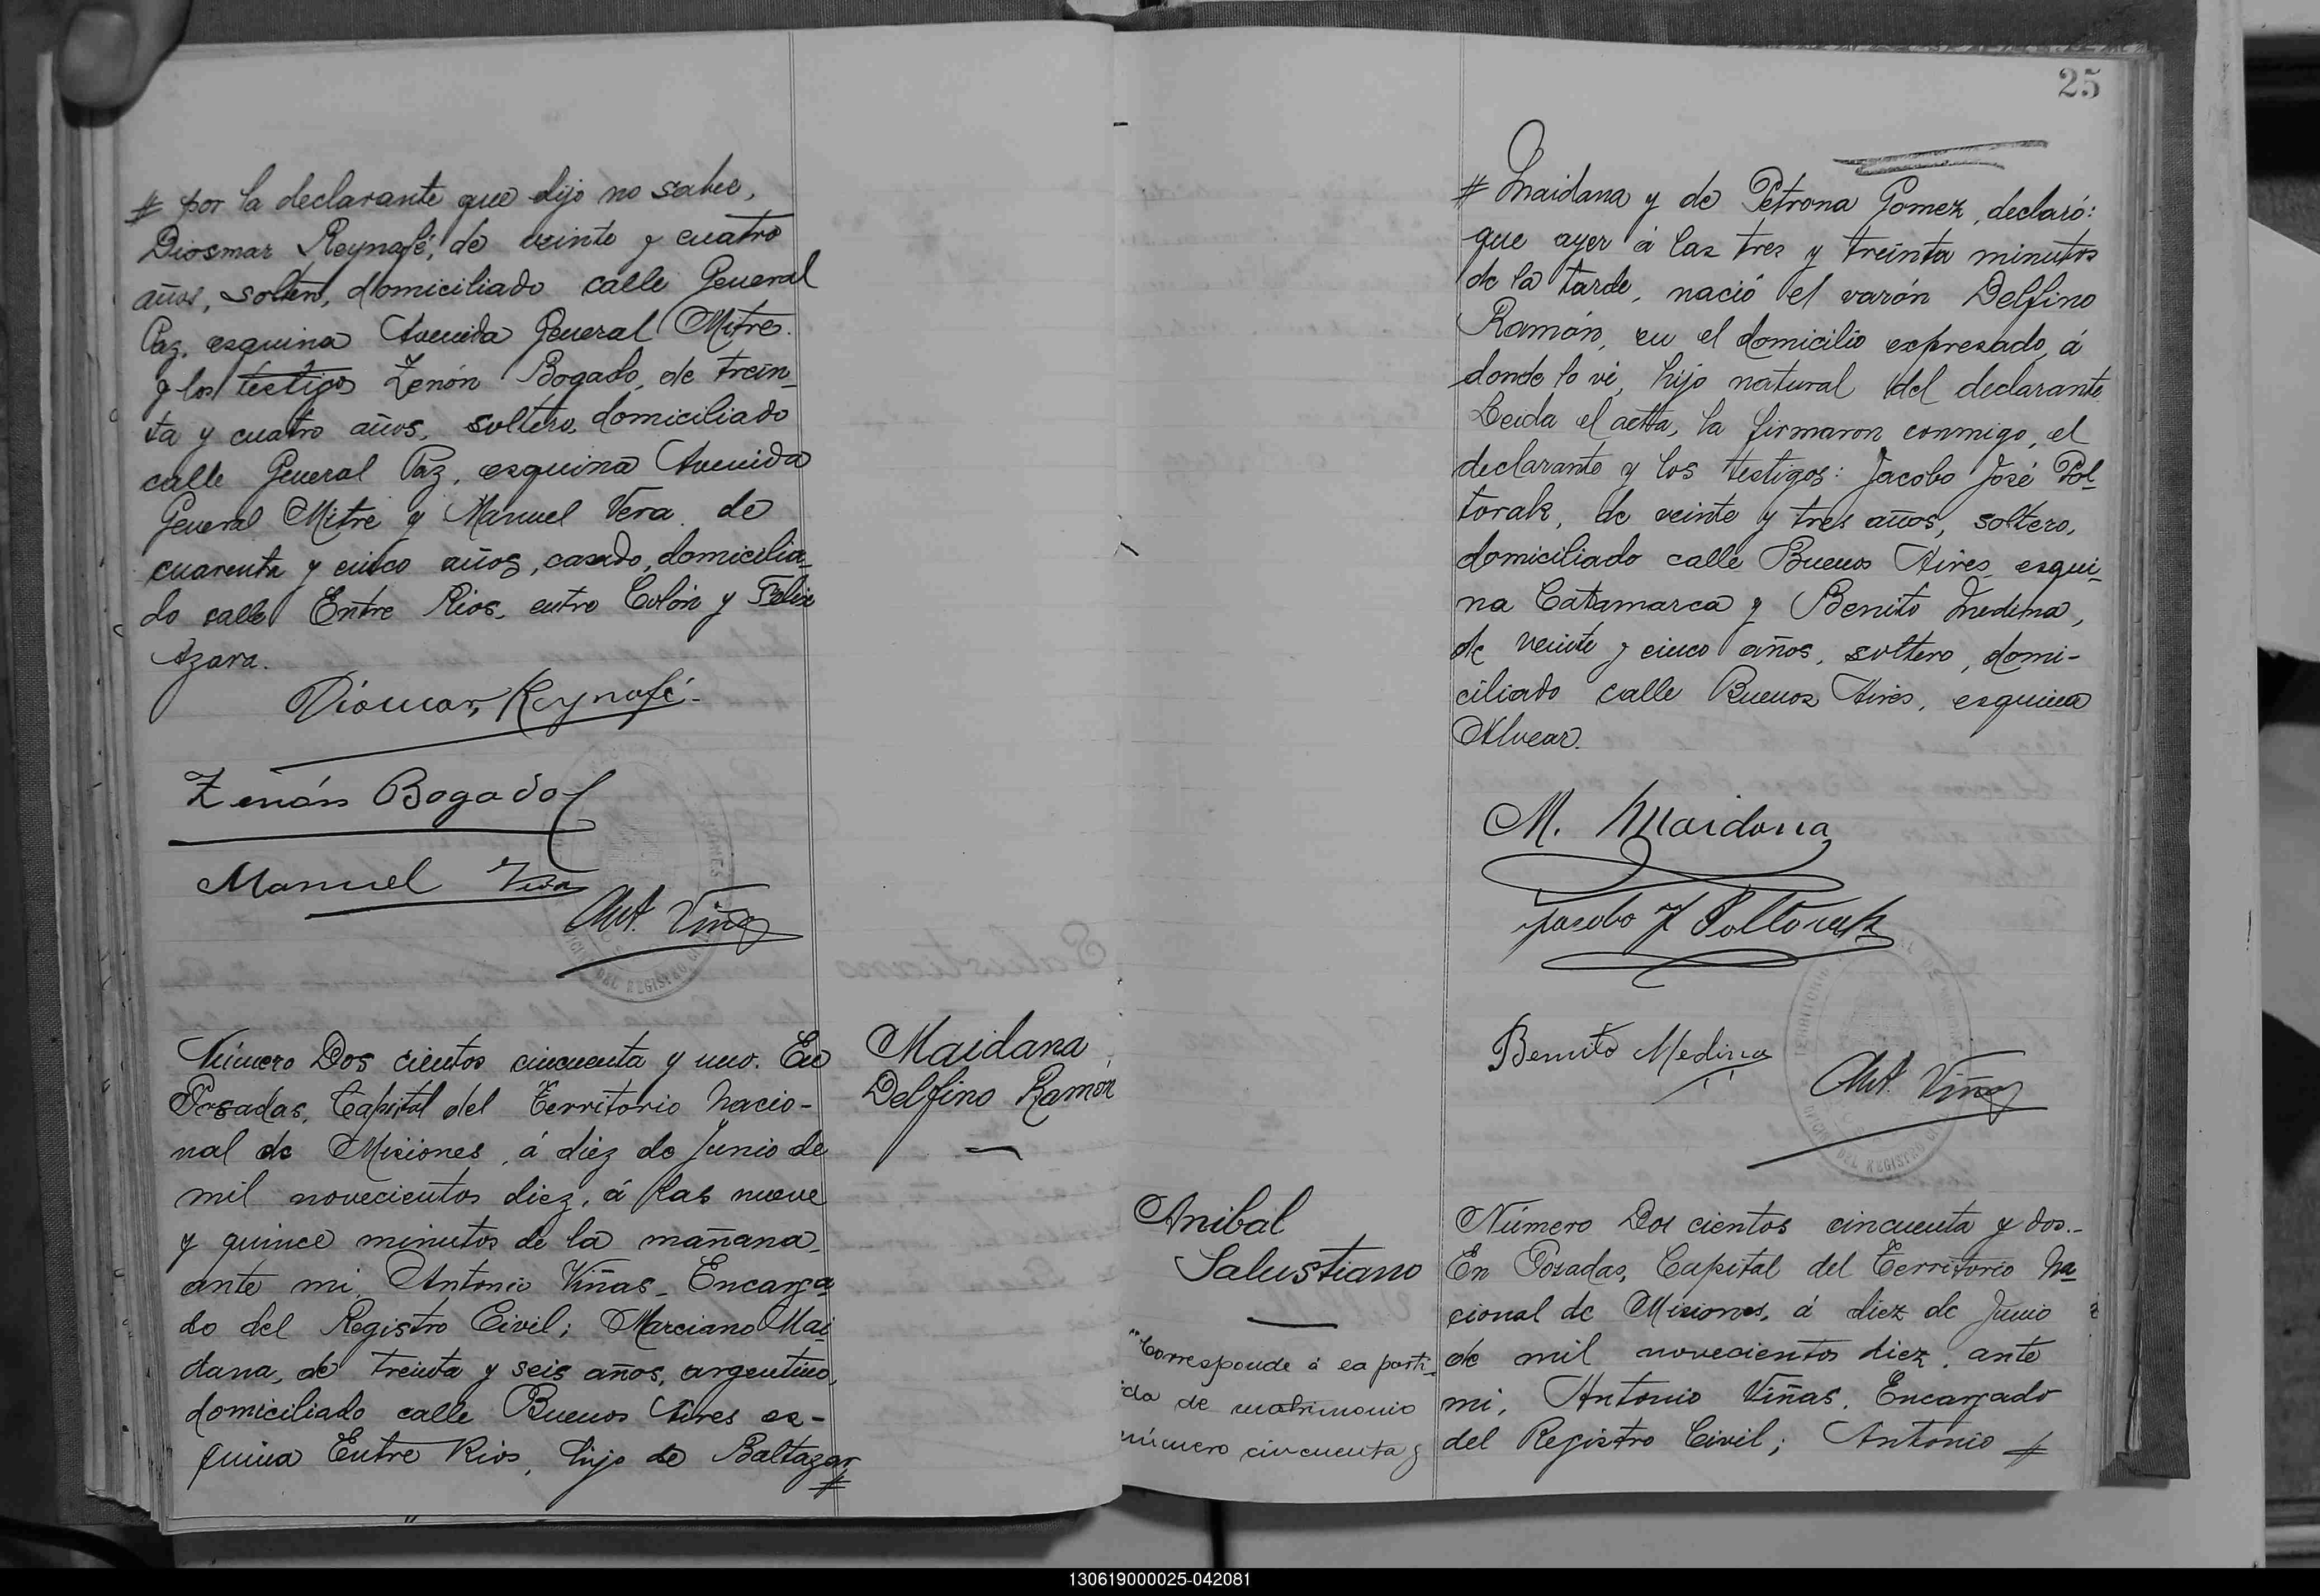 # por la declarante que dijo no saber,
Diosmar Reynafé, de veinte y cuatro
años, soltero, domiciliado calle General
Paz, esquina Avenida General Mitre.
y los testigos Zenón Bogado, de trein_
ta y cuatro años, soltero, domiciliado
calle General Paz, esquina Avenida
General Mitre y Manuel Vera, de
cuarenta y cinco años, casado, domicilia_
do calle Entre Rios, entre Colón y Felix
Azara.
Diosmar Reynafé
Zenón Bogado
Manuel Vera
Ant. Viñas
DEL REGISTRO
Número Dos cientos cincuenta y uno. En
Posadas, Capital del Territorio Nacio-
nal de Misiones, á diez de Junio de
mil novecientos diez, á las nueve
y quince minutos de la mañana,
ante mi, Antonio Viñas, Encarga
do del Registro Civil; Marciano Mai
dana, de treinta y seis años, argentino,
domiciliado calle Buenos Aires es-
quina Entre Rios, hijo de Baltazar
#
Maidana
Delfino Ramón
25
# Maidana y de Petrona Gomez, declaró:
que ayer á las tres y treinta minutos
de la tarde, nació el varón Delfino
Ramón, en el domicilio expresado, á
donde lo vi, hijo natural del declarante.
Leida el acta, la firmaron conmigo, el
declarante y los testigos: Jacobo José Pol_
torak, de veinte y tres años, soltero,
domiciliado calle Buenos Aires esqui_
na Catamarca y Benito Medina,
de veinte y cinco años, soltero, domi-
ciliado calle Buenos Aires, esquina
Alvear.
M. Maidana
Jacobo J Poltorak
Benito Medina
Ant. Viñas
TERRITORIO
DEL REGISTRO
Anibal
Salustiano
"Corresponde á la parti_
da de matrimonio
número cincuenta y
Número Dos cientos cincuenta y dos.-
En Posadas, Capital del Territorio Na
cional de Misiones, á diez de Junio
de mil novecientos diez, ante
mi, Antonio Viñas, Encargado
del Registro Civil; Antonio #
130619000025-042081